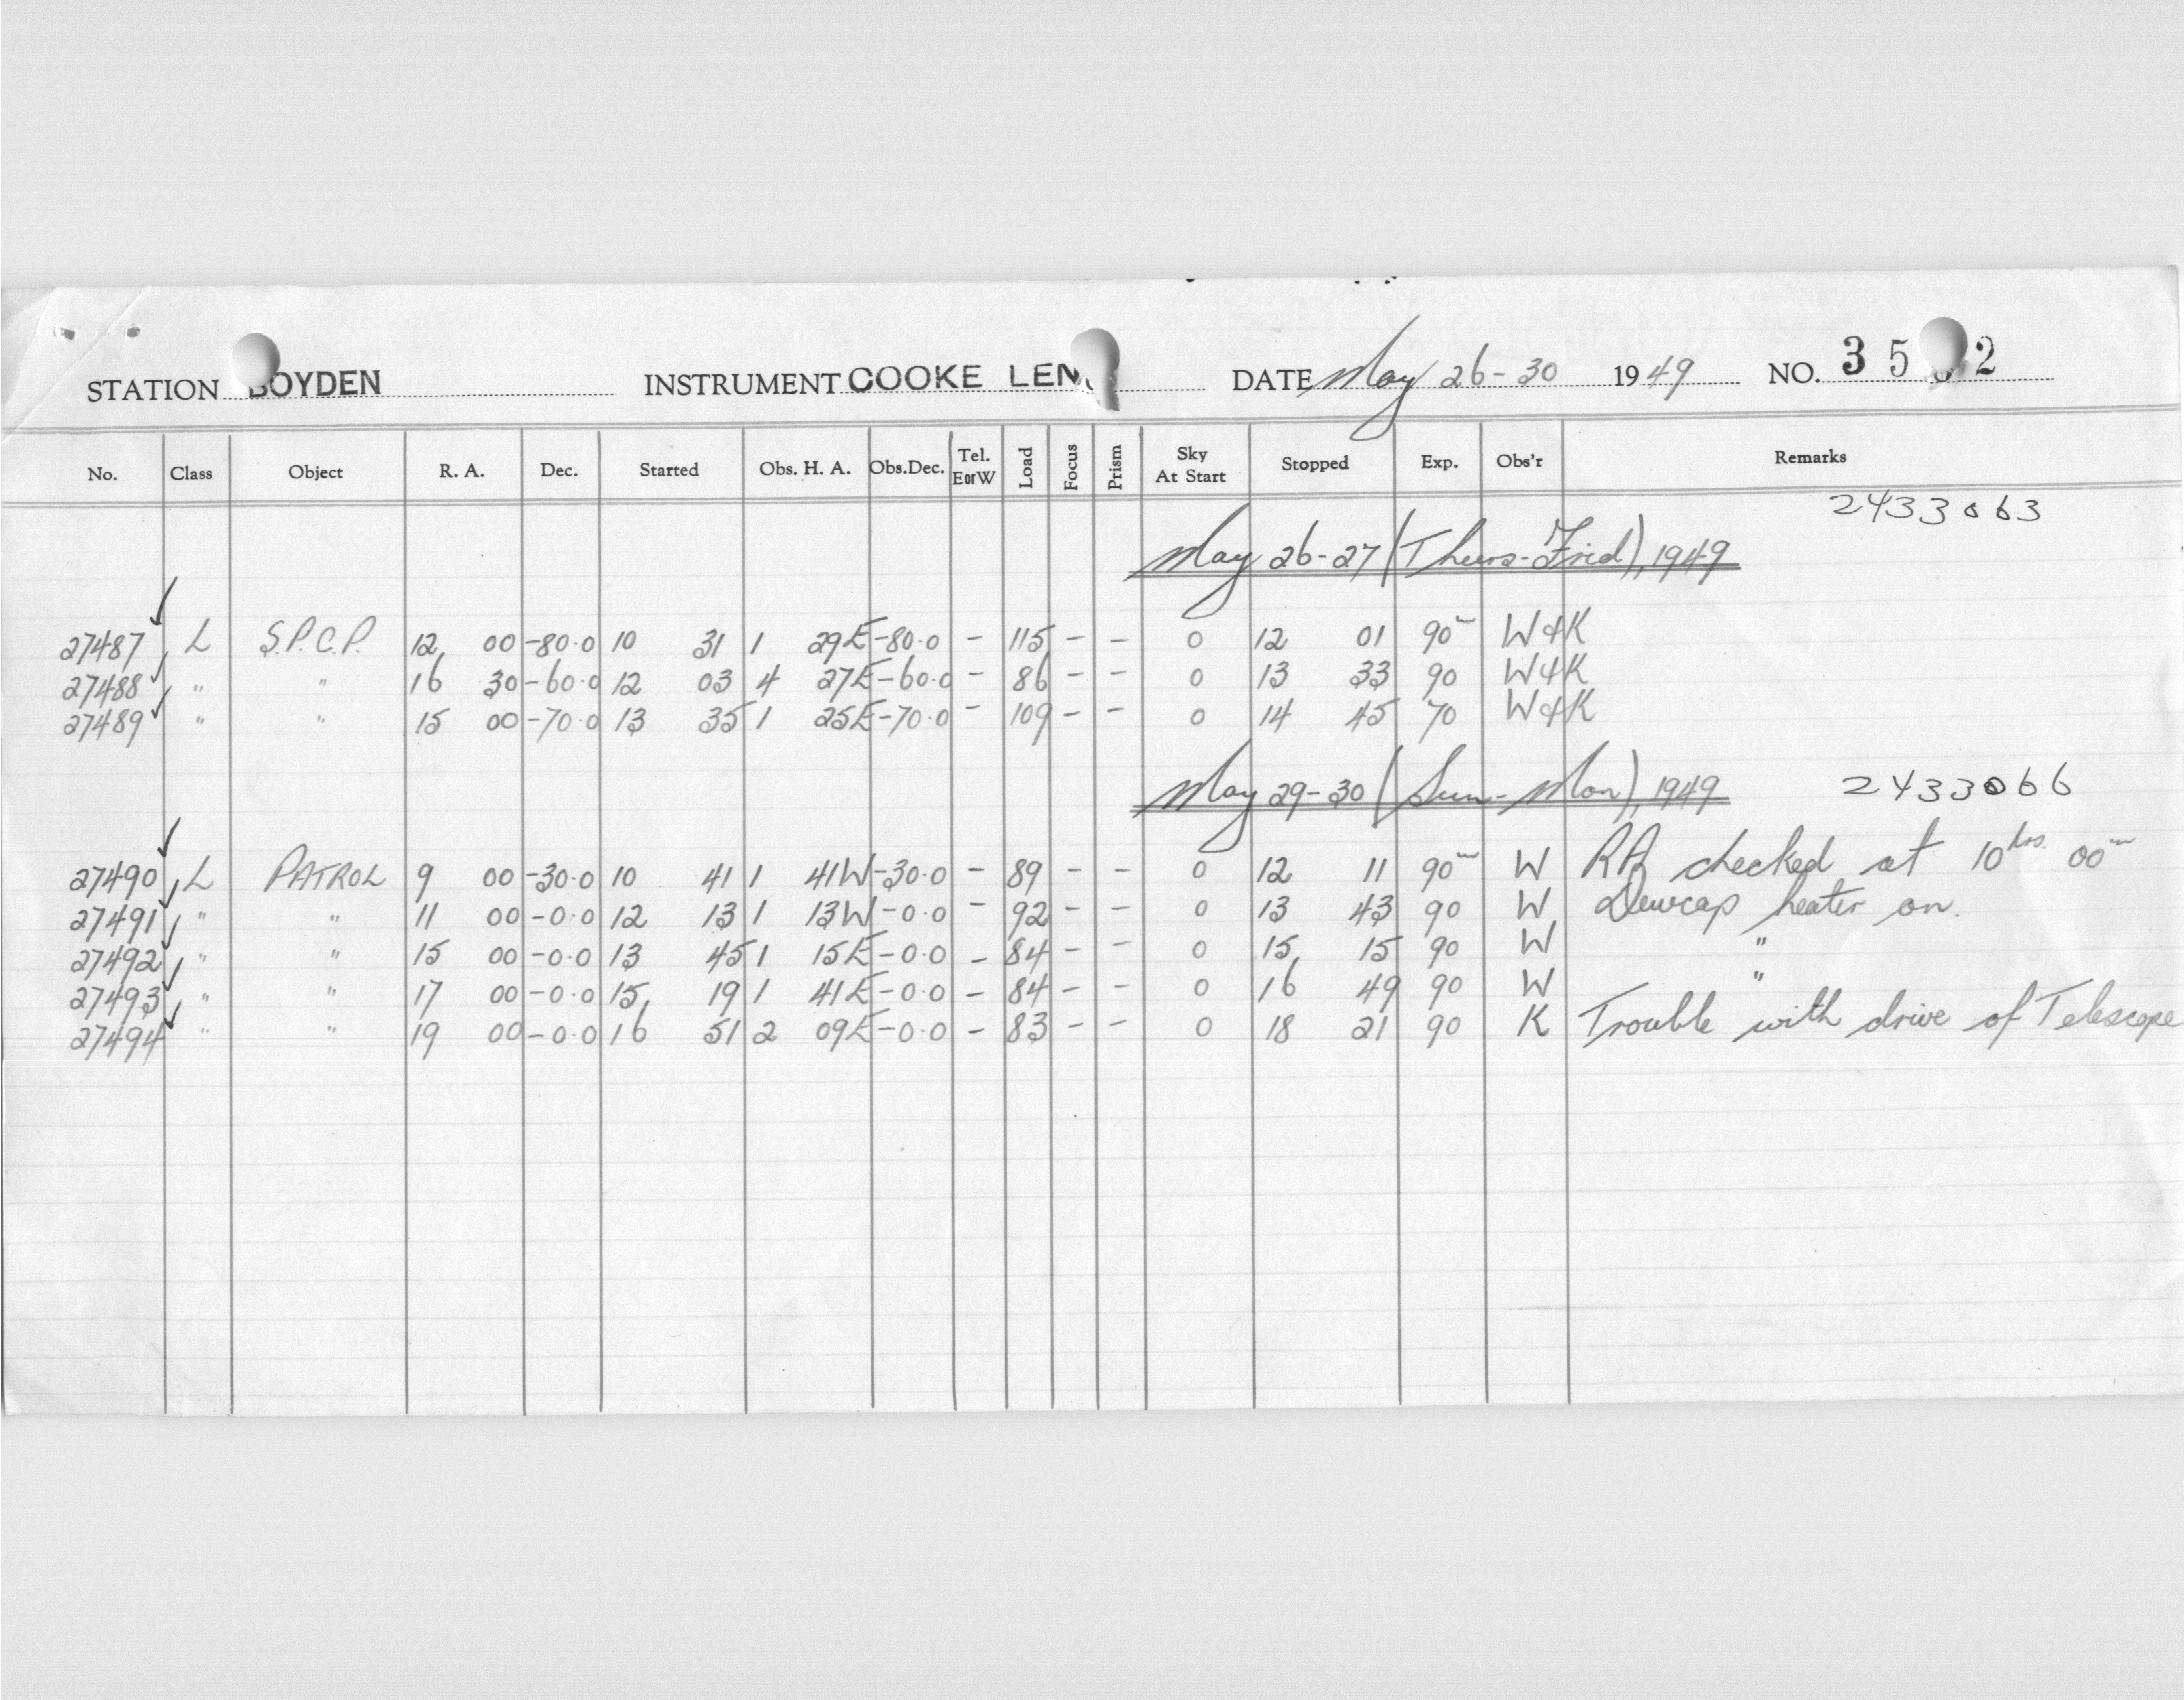 STATION BOYDEN INSTRUMENT COOKE LEN DATE May 26-30 1949 NO. 35 2
No. Class Object R. A. Dec. Started Obs. H. A. Obs.Dec. Tel. EorW Load Focus Prism Sky At Start Stopped Exp. Obs'r Remarks
2433063
May 26-27 (Thurs-Frid), 1949
27487 L S.P.C.P. 12 00 -80.0 10 31 1 29E -80.0 - 115 - - 0 12 01 90m W&K
27488 " " 16 30 -60.0 12 03 4 27E -60.0 - 86 - - 0 13 33 90 W&K
27489 " " 15 00 -70.0 13 35 1 25E -70.0 - 109 - - 0 14 45 70 W&K
May 29-30 (Sun-Mon), 1949 2433066
27490 L PATROL 9 00 -30.0 10 41 1 41W -30.0 - 89 - - 0 12 11 90m W RA checked at 10hrs. 00m
27491 " " 11 00 -0.0 12 13 1 13W -0.0 - 92 - - 0 13 43 90 W Dewcap heater on.
27492 " " 15 00 -0.0 13 45 1 15E -0.0 - 84 - - 0 15 15 90 W "
27493 " " 17 00 -0.0 15 19 1 41E -0.0 - 84 - - 0 16 49 90 W "
27494 " " 19 00 -0.0 16 51 2 09E -0.0 - 83 - - 0 18 21 90 K Trouble with drive of Telescope